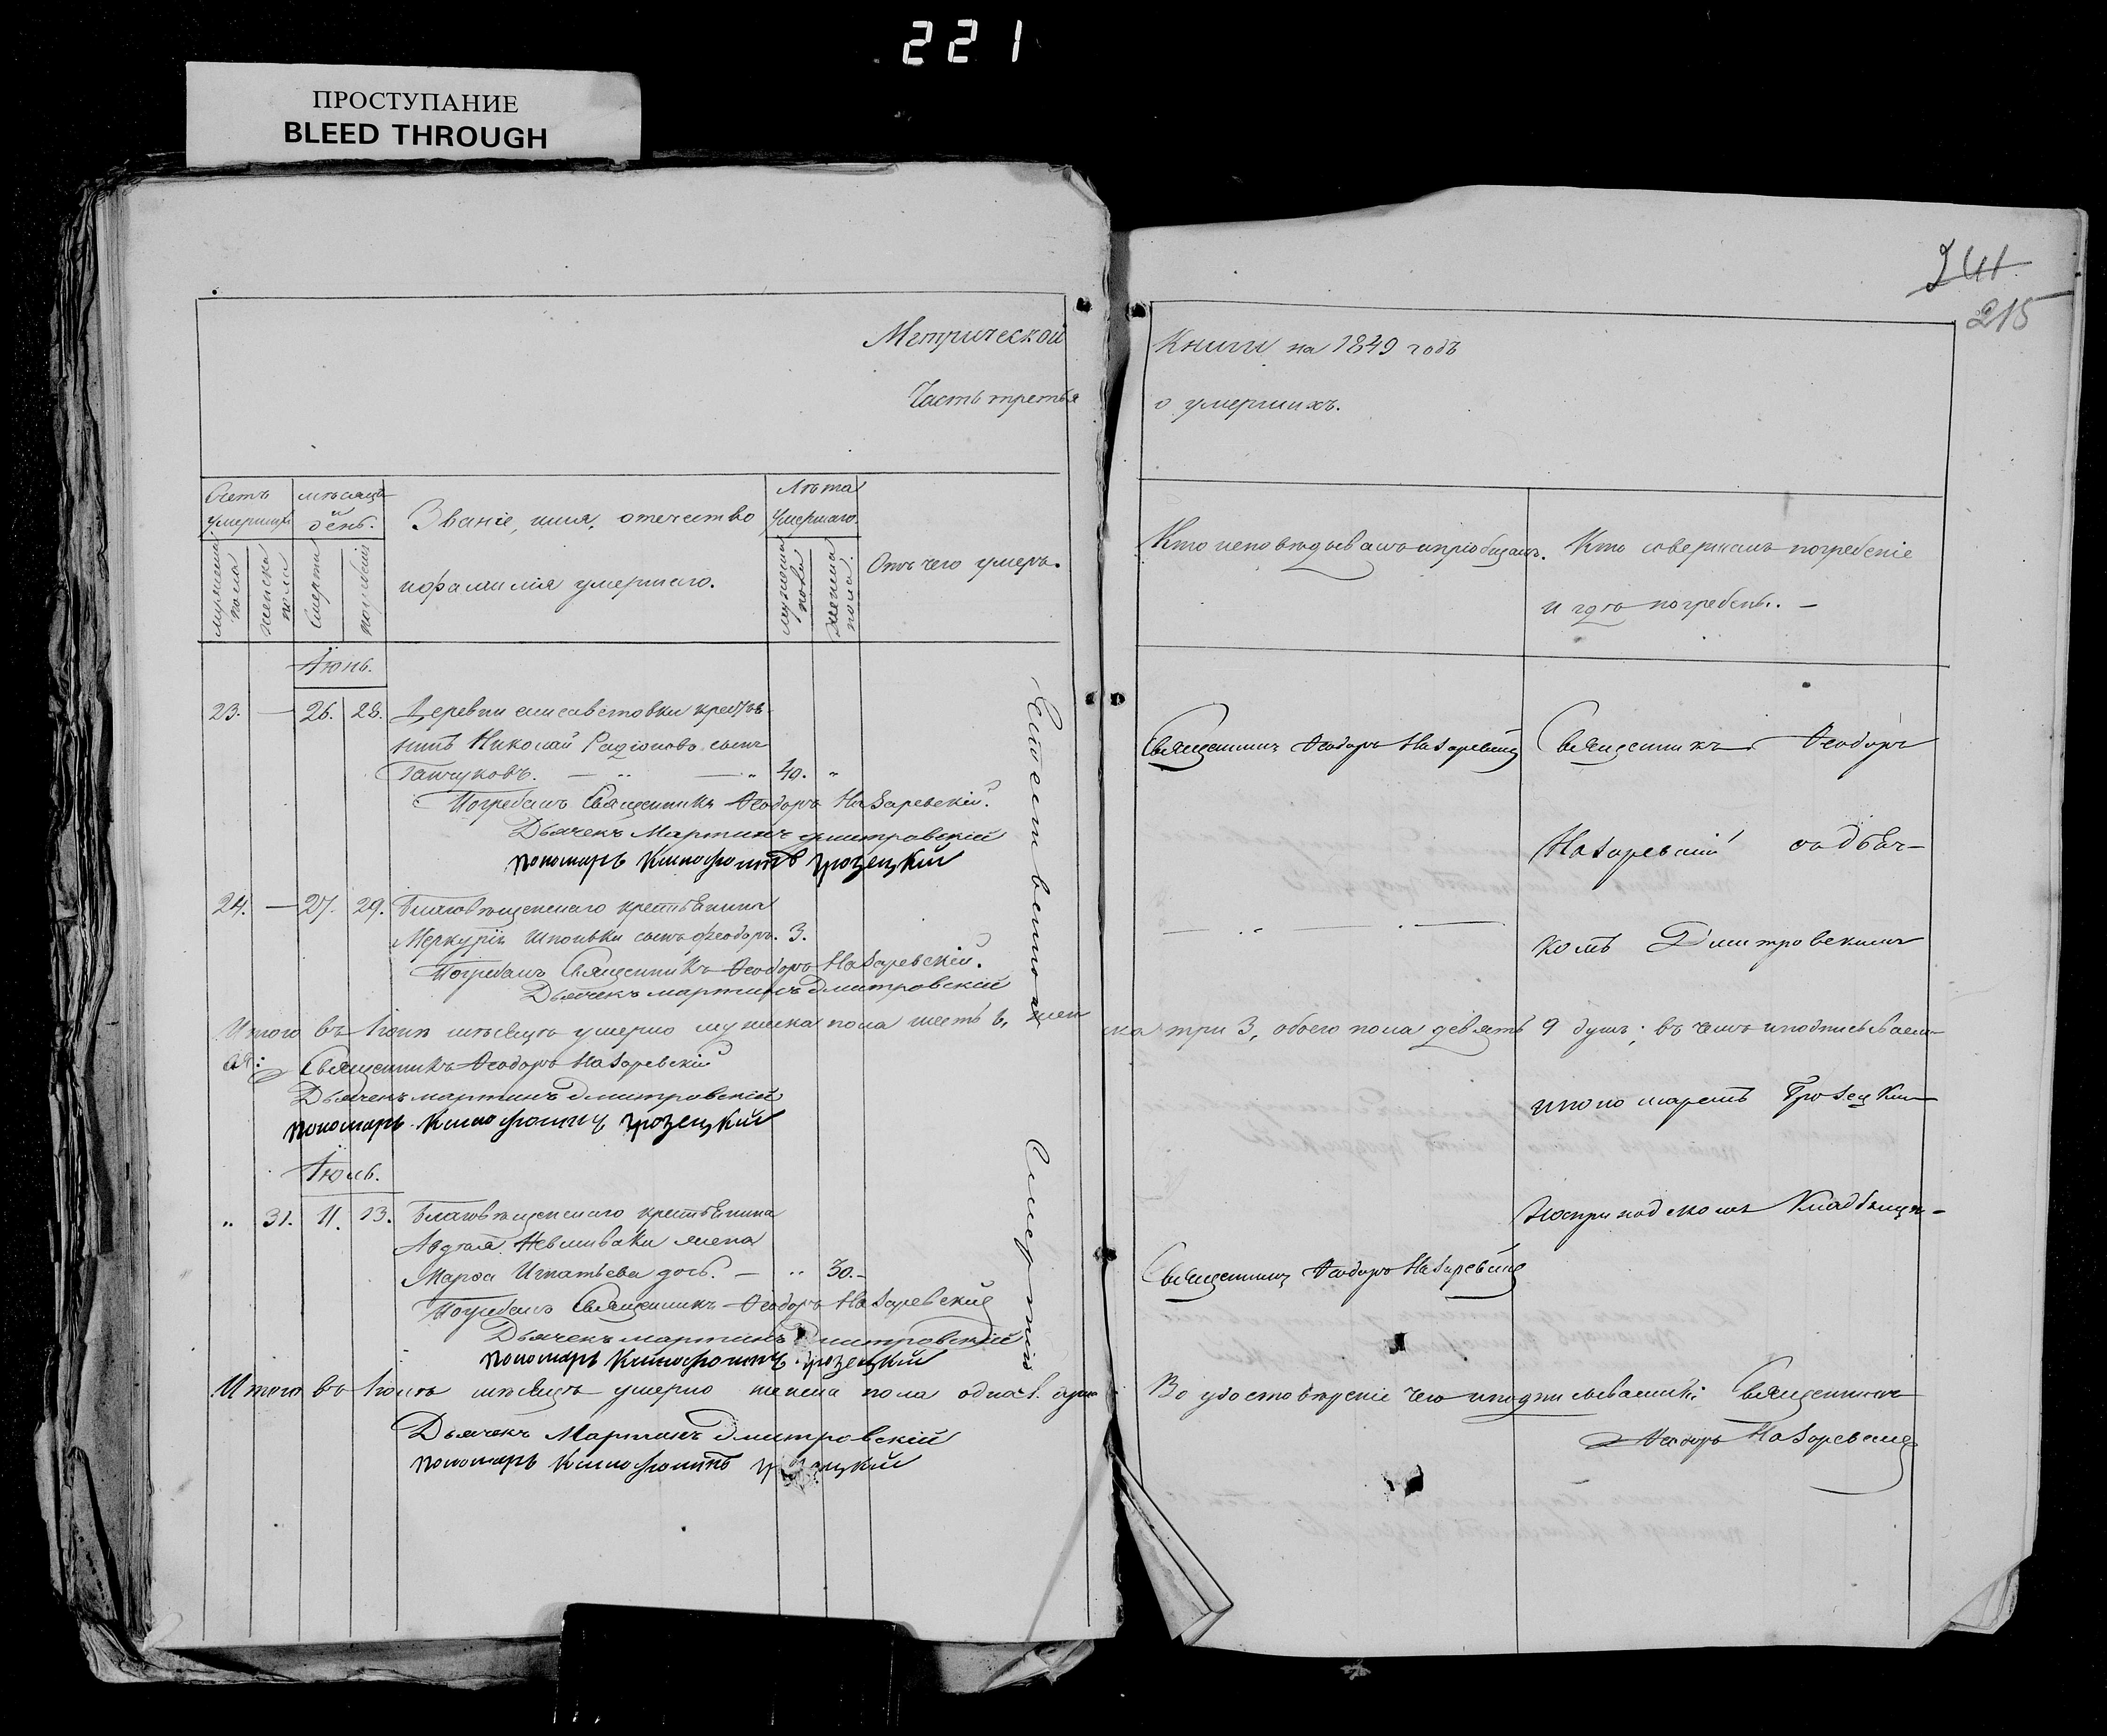 221
ПРОСТУПАНИЕ
BLEED THROUGH
241
215
Метрической Книги на 1849 годъ
Часть третья о умершихъ.
Счетъ умершихъ
мѣсяцъ и день.
Званіе, имя, отечество
и фамилія умершаго.
Лѣта умершаго
Отъ чего умеръ.
Кто исповѣдывалъ и пріобщалъ.
Кто совершалъ погребеніе
и гдѣ погребены. —
мужеска пола
женска пола
смерти
погребенія
мужеска пола
женска пола.
Іюнь.
23. — 26. 28. Деревни елисаветовки крестья-
нинъ Николай Радіоновъ сынъ
40. „
Погребалъ Священникъ Ѳеодоръ Назаревскій.
Дьячекъ Мартинъ Дмитровскій
пономарь Ксенофонтъ Грозецкій
24. — 27. 29. Благовѣщенскаго крестьянина
Меркурія сынъ Ѳеодоръ. 3.
Погребалъ Священникъ Ѳеодоръ Назаревскій.
Дьячекъ мартинъ Дмитровскій
Итого въ Іюнѣ мѣсяцѣ умерло мужеска пола шесть 6, жен
ска три 3, обоего пола девять 9 душъ; въ чемъ и подписываем-
ся:
Священникъ Ѳеодоръ Назаревскій
Дьячекъ мартинъ Дмитровскій
пономарь Ксенофонтъ Грозецкій
Іюль.
„ 31. 11. 13. Благовѣщенскаго крестьянина
Авдѣя жена
Марѳа Игнатьева дочь. — „ 30.-
Погребалъ Священникъ Ѳеодоръ Назаревскій
Дьячекъ мартинъ Дмитровскій
пономарь Ксенофонтъ Грозецкій
Итого въ Іюлѣ мѣсяцѣ умерло женска пола одна 1. душа
Дьячекъ Мартинъ Дмитровскій
пономарь Ксенофонтъ Грозецкій
Естественною
Смертію
Священникъ Ѳеодоръ Назаревскій
Священникъ Ѳеодоръ
Назаревскій съ дьяч-
комъ Дмитровскимъ
и пономаремъ Грозецким
на приходскомъ Кладбищѣ-
Священникъ Ѳеодоръ Назаревскій
Во удостовѣреніе чего и подписываемся: Священникъ
Ѳеодоръ Назаревскій